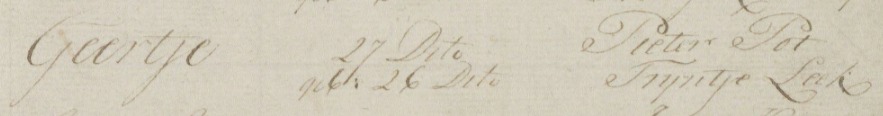 Geertje 27 Dito Pieter Pot
geb: 26 Dito Tryntje Leek